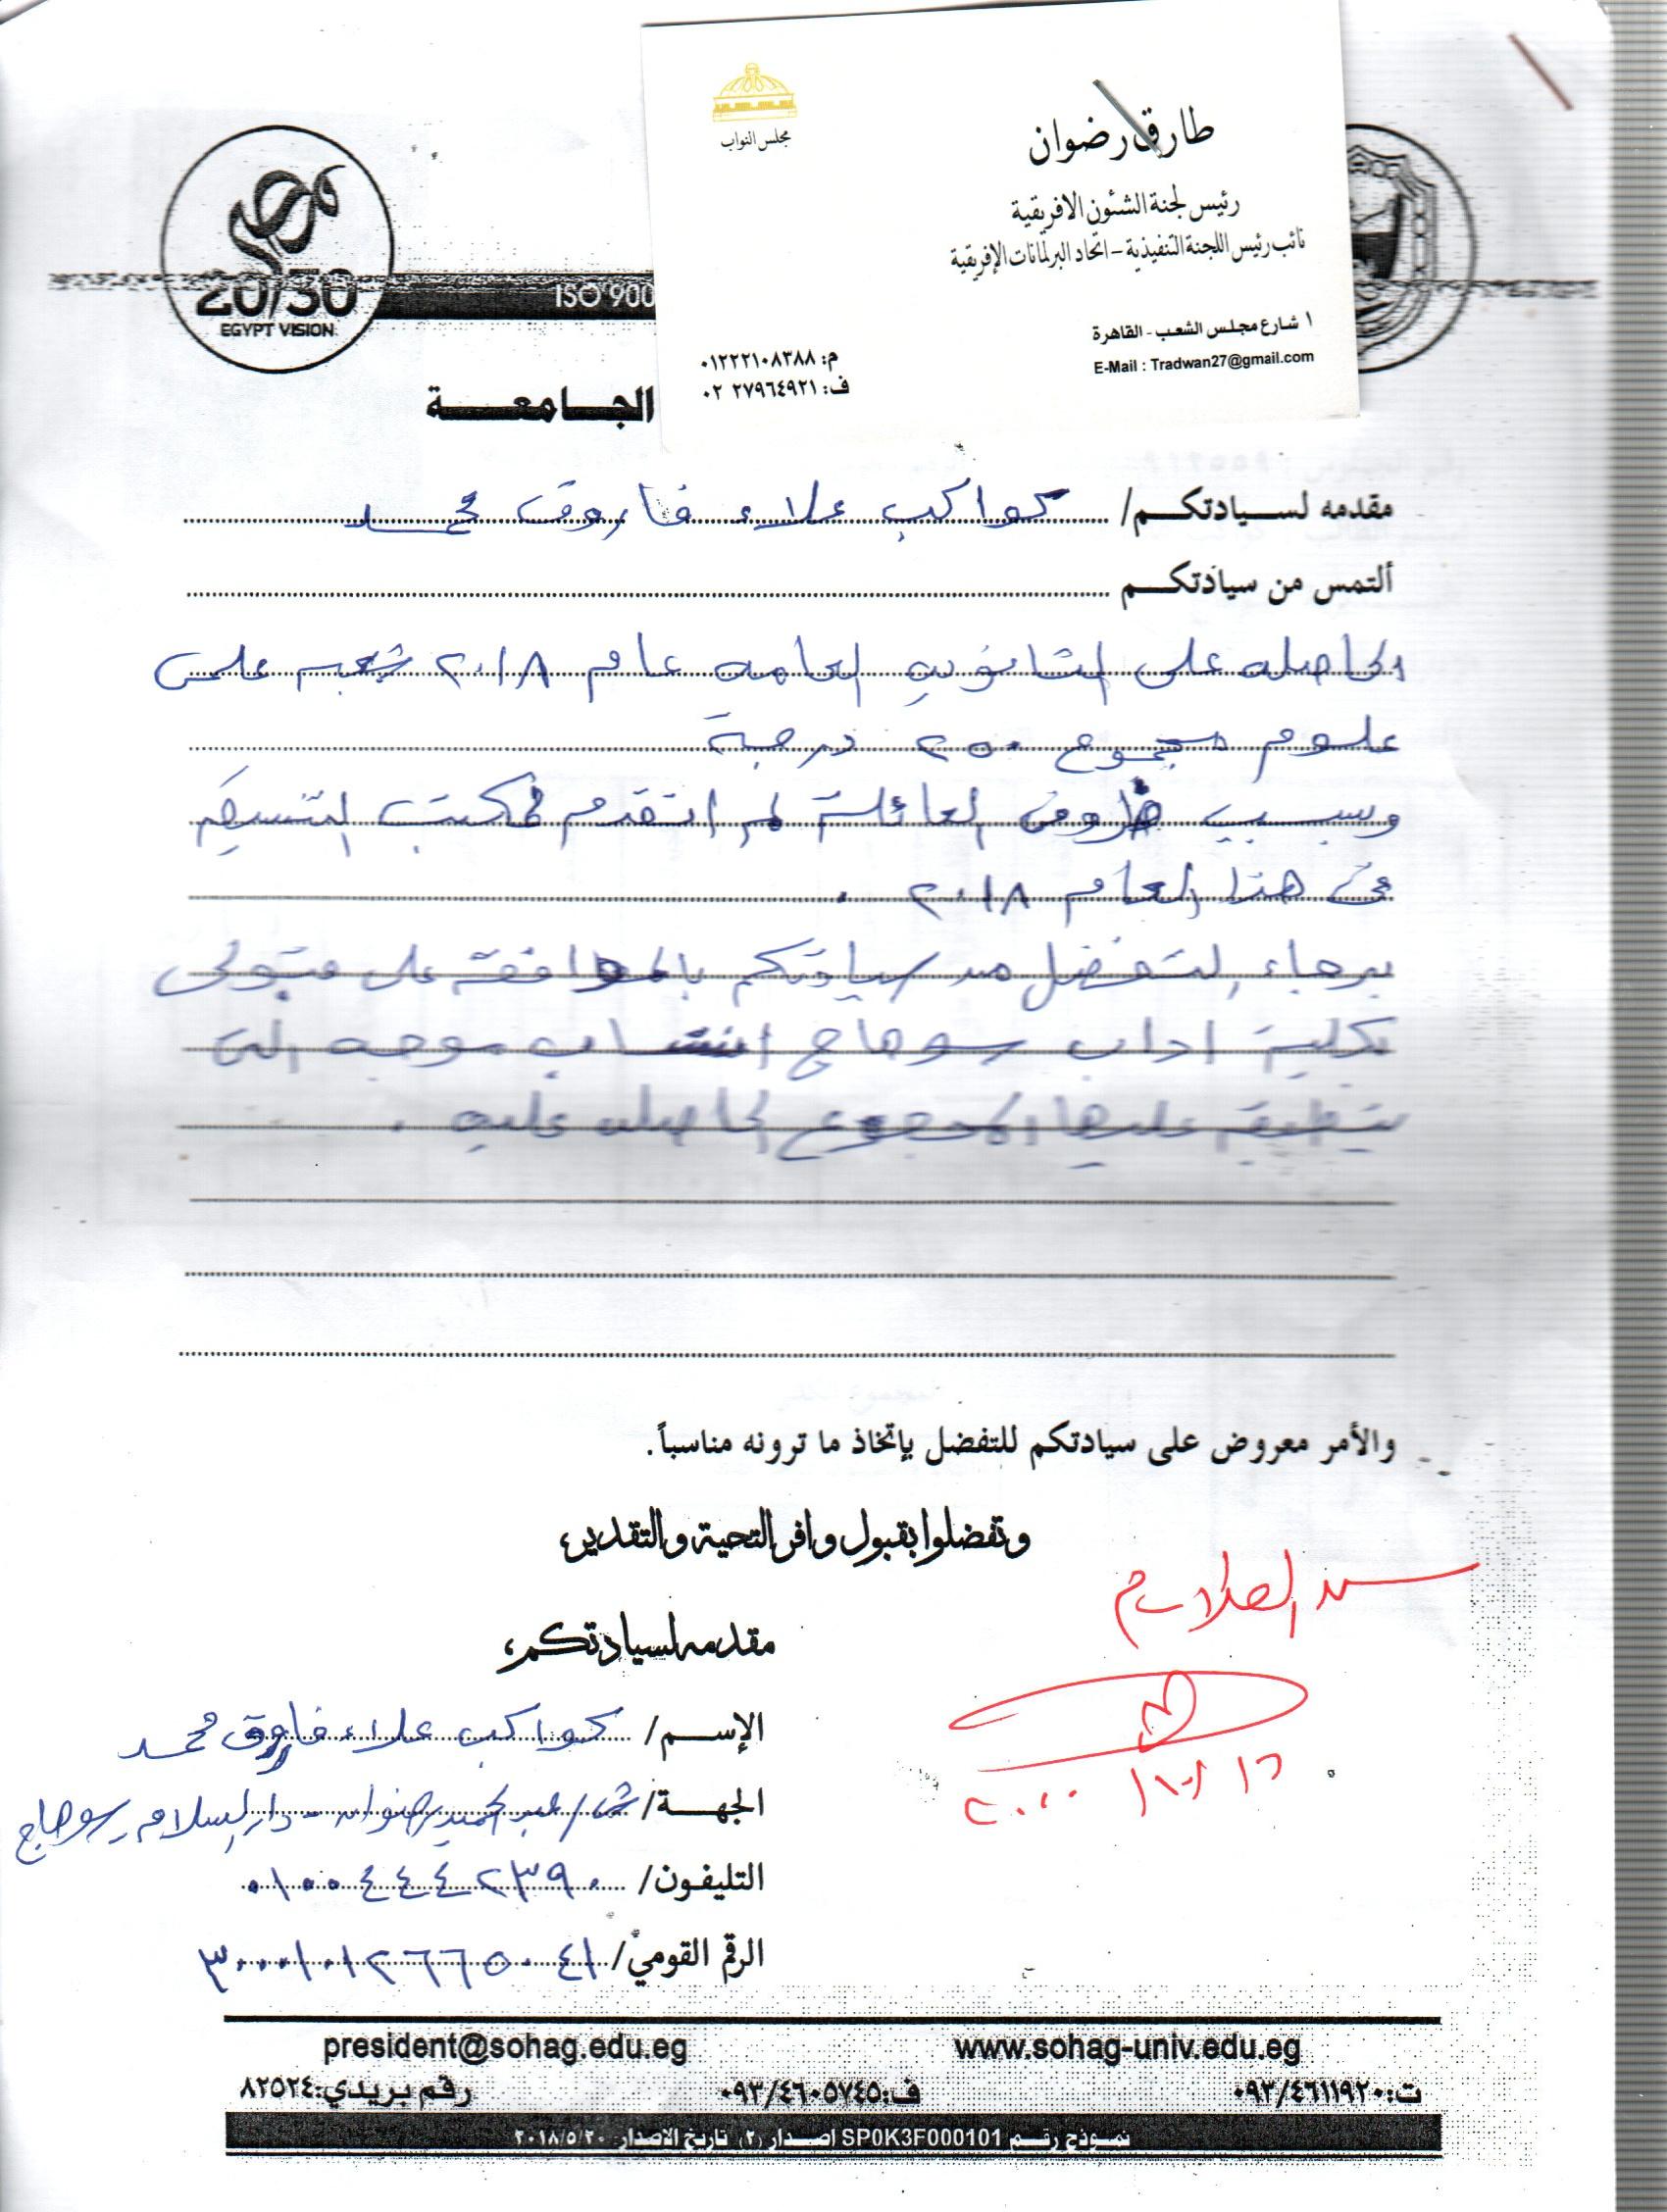 طارق رضوان
مجلس النواب
رئيس لجنة الشئون الافريقية
نائب رئيس اللجنة التنفيذية - اتحاد البرلمانات الإفريقية
١ شارع مجلس الشعب - القاهرة
E-Mail : Tradwan27@gmail.com
م: ٠١٢٢٢١٠٨٣٨٨
ف: ٢٧٩٦٤٩٢١ ٠٢
مصر
20/30
EGYPT VISION
ISO 900
الجامعة
مقدمه لسيادتكم/ كواكب علاء فاروق محمد
ألتمس من سيادتكم
الحاصله على الثانويه العامه عام ٢٠١٨ شعبه علمى
علوم مجموع ٢٥٠ درجة
وسبب ظروف العائلة لم اتقدم لمكتب التنسيق
فى هذا العام ٢٠١٨ .
برجاء التفضل من سيادتكم بالموافقة على قبولى
بكلية اداب سوهاج انتساب موجه التى
ينطبق عليها المجموع الحاصله عليه .
والأمر معروض على سيادتكم للتفضل بإتخاذ ما ترونه مناسباً.
وتفضلوا بقبول وافر التحية والتقدير،
مقدمه لسيادتكم،
الإسم/ كواكب علاء فاروق محمد
الجهة/ ش عبد الحميد رضوان - دار السلام - سوهاج
التليفون/ ٠١٠٠٤٤٤٢٣٩٠
الرقم القومي/ ٣٠٠٠١٠١٢٦٦٥٠٤١
president@sohag.edu.eg www.sohag-univ.edu.eg
ت: ٠٩٣/٤٦١١٩٢٠ ف: ٠٩٣/٤٦٠٥٧٤٥ رقم بريدي: ٨٢٥٢٤
نموذج رقم SP0K3F000101 اصدار (٢) تاريخ الاصدار ٢٠١٨/٥/٢٠